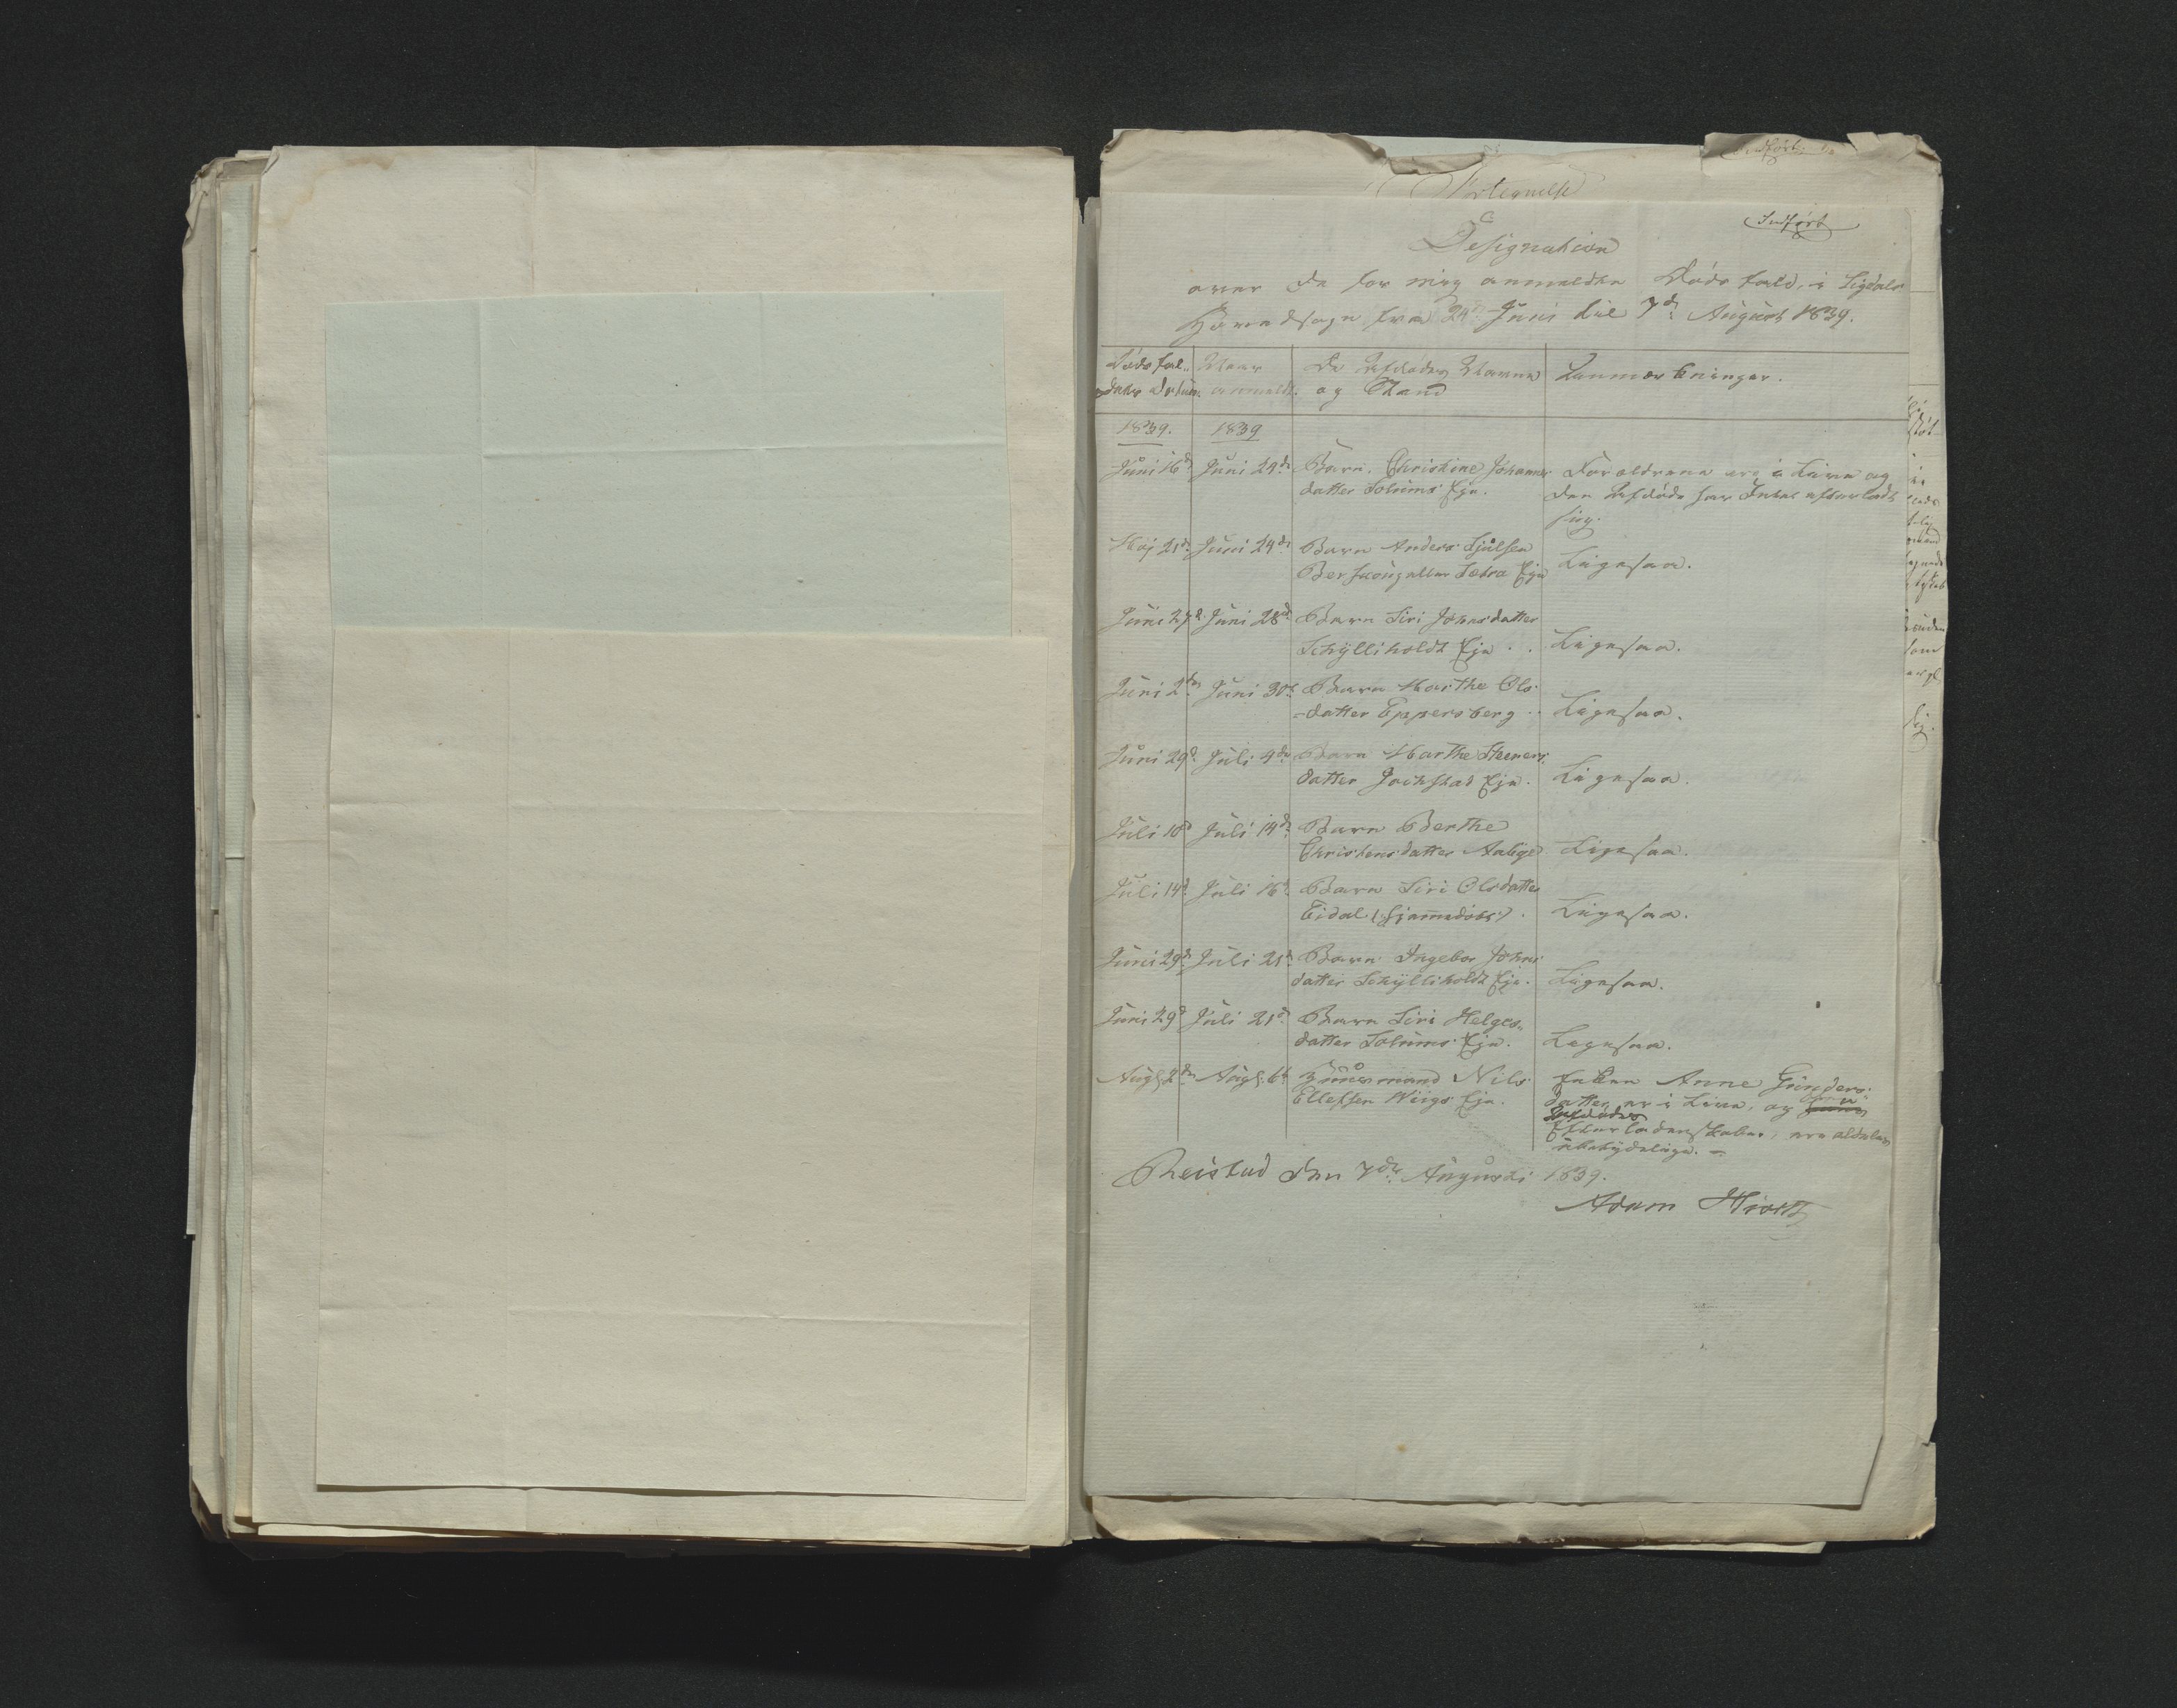 Indført
Fortegnelse
Indført
Designation
over de for mig anmeldte Dødsfald, i Sigdals
Hovedsogn fra 24de Juni til 7de August 1839.
Dødsfal-
dets Datum. Naar
anmeldt. De Afdødes Navne
og Stand Anmærkninger.
1839. 1839
Juni 16de Juni 24de Barn. Christine Johannes
datter Solums Eje. Forældrene ere i Live og
den Afdøde har Intet efterladt
sig.
Maj 21de Juni 24de Barn Anders
Eje Ligesaa.
Juni 27de Juni 28de Barn Siri Johnsdatter
Schylliholdt Eje . . Ligesaa.
Juni 2den Juni 30te Barn Marthe Ols
-datter Eppersberg .. Ligesaa.
Juni 29de Juli 4de Barn Marthe Steeners
datter Eje. Ligesaa.
Juli 10de Juli 14de Barn Berthe
Christensdatter Ligesaa.
Juli 14de Juli 16de Barn Siri Olsdatter
Eidal (hjemmedøbt). Ligesaa.
Juni 29de Juli 21de Barn Ingebor Johns
datter Schylliholdt Eje. Ligesaa.
Juni 29de Juli 21de Barn Siri Helges-
datter Solums Eje. Ligesaa.
Augt. 2den Augt. 6te Huusmand Nils
Ellefsen Wiigs Eje. Enken Anne Gunders-
datter er i Live, og
Afdødes
Efterladenskaber, ere aldeles
ubetydelige. -
Reistad den 7de Augusti 1839.
Adam